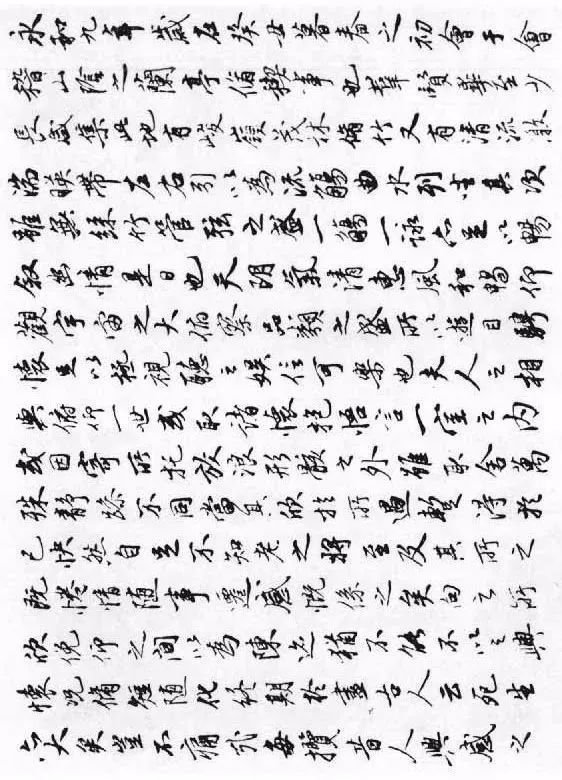 永和九年歲在癸丑暮春之初會于會
稽山陰之蘭亭脩禊事也羣賢畢至少
長咸集此地有峻嶺茂林脩竹又有清流激
湍暎帶左右引以為流觴曲水列坐其次
雖無絲竹管弦之盛一觴一詠亦足以暢
敘幽情是日也天朗氣清惠風和暢仰
觀宇宙之大俯察品類之盛所以遊目騁
懷足以極視聽之娛信可樂也夫人之相
與俯仰一世或取諸懷抱悟言一室之內
或因寄所托放浪形骸之外雖取舍萬
殊靜躁不同當其欣於所遇暫得於
己快然自足不知老之將至及其所之
既惓情隨事遷感慨係之矣向之所
欣俛仰之間以為陳迹猶不能不以之興
懷況脩短隨化終期於盡古人云死生
亦大矣豈不痛哉每攬昔人興感之